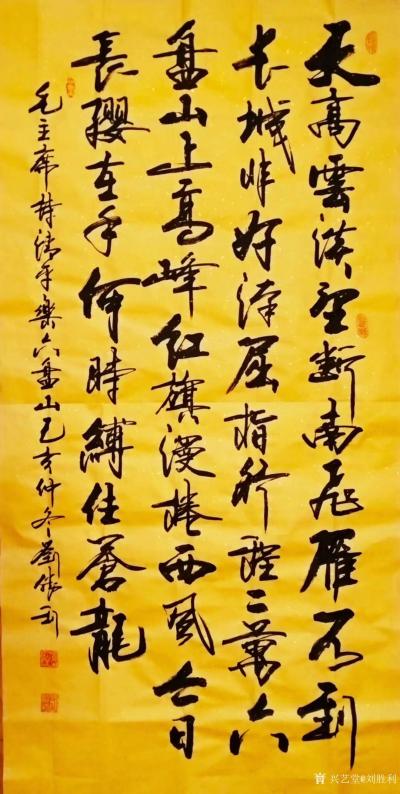 天高雲淡望斷南飛雁不到
长城非好漢屈指行程二萬六
盘山上高峰红旗漫捲西風今日
長纓在手何時縛住蒼龍
毛主席詩清平樂六盘山己亥仲冬劉勝利
兴艺堂@刘胜利